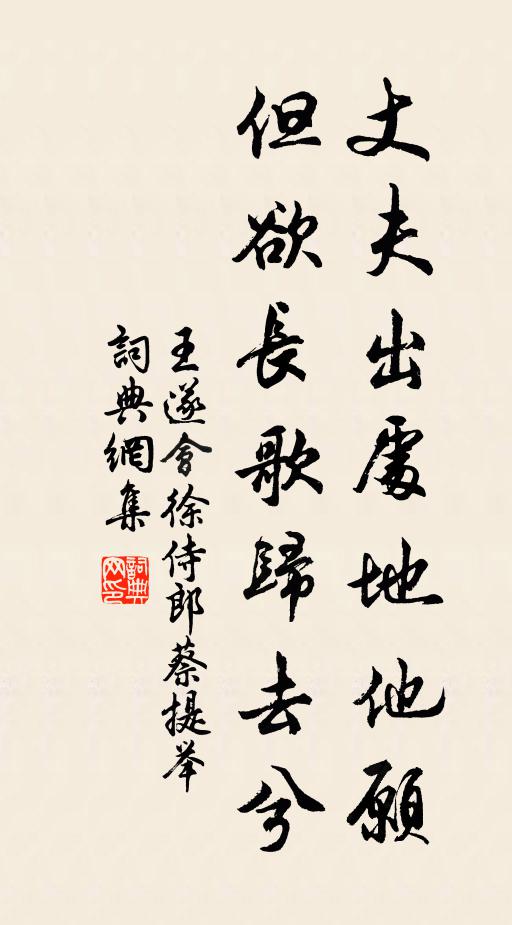 丈夫出處地他願
但欲長歌歸去兮
王遂會徐侍郎蔡提举
詞典網集
詞典網印